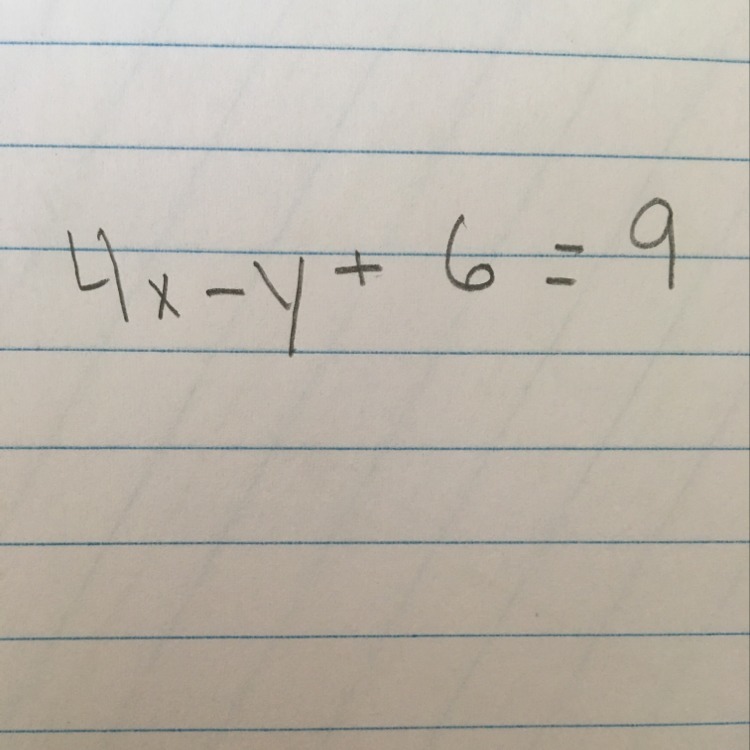 4x - y + 6 = 9